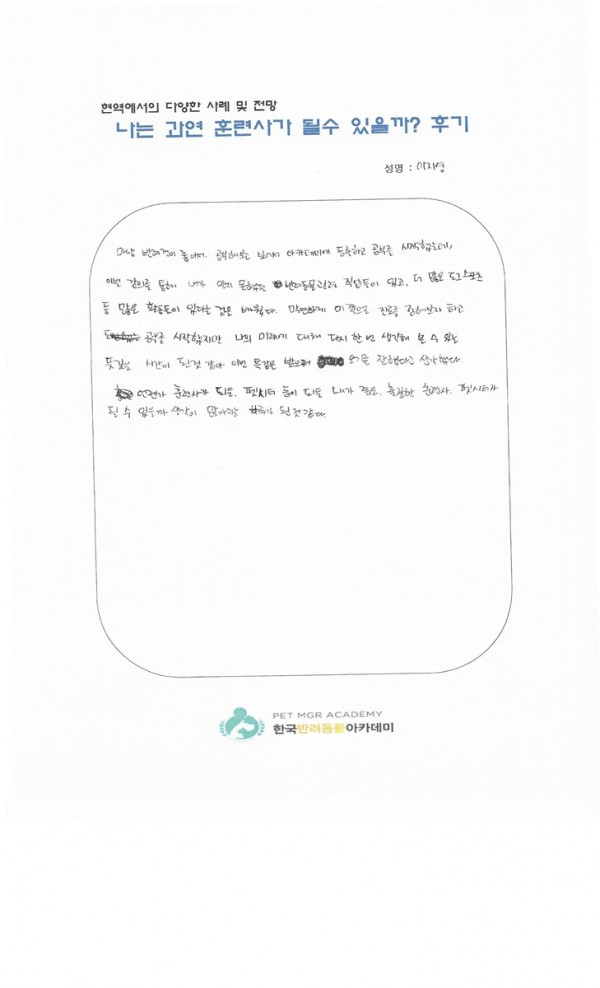 현역에서의 다양한 사례 및 전망
나는 과연 훈련사가 될수 있을까? 후기
성명 : 이지영
마냥 반려견이 좋아서 공부해보고 싶어서 아카데미에 등록하고 공부를 시작했는데,
이번 강의를 통해 내가 알지 못하던 반려동물관련 직업들이 있고, 더 많은 도그스포츠
등 많은 활동들이 있다는 것을 배웠다. 막연하게 이쪽으로 진로를 정해보자 하고
공부를 시작했지만 나의 미래에 대해 다시 한 번 생각해 볼 수 있는
뜻깊은 시간이 된것 같다 이번 특강은 받으러 오기를 잘했다고 생각했다.
언젠가 훈련사가 되든, 펫시터 등이 되든 내가 좋은, 훌륭한 훈련사, 펫시터가
될 수 있을까 생각이 많아지는 하루가 된것 같다.
PET MGR ACADEMY
한국반려동물아카데미